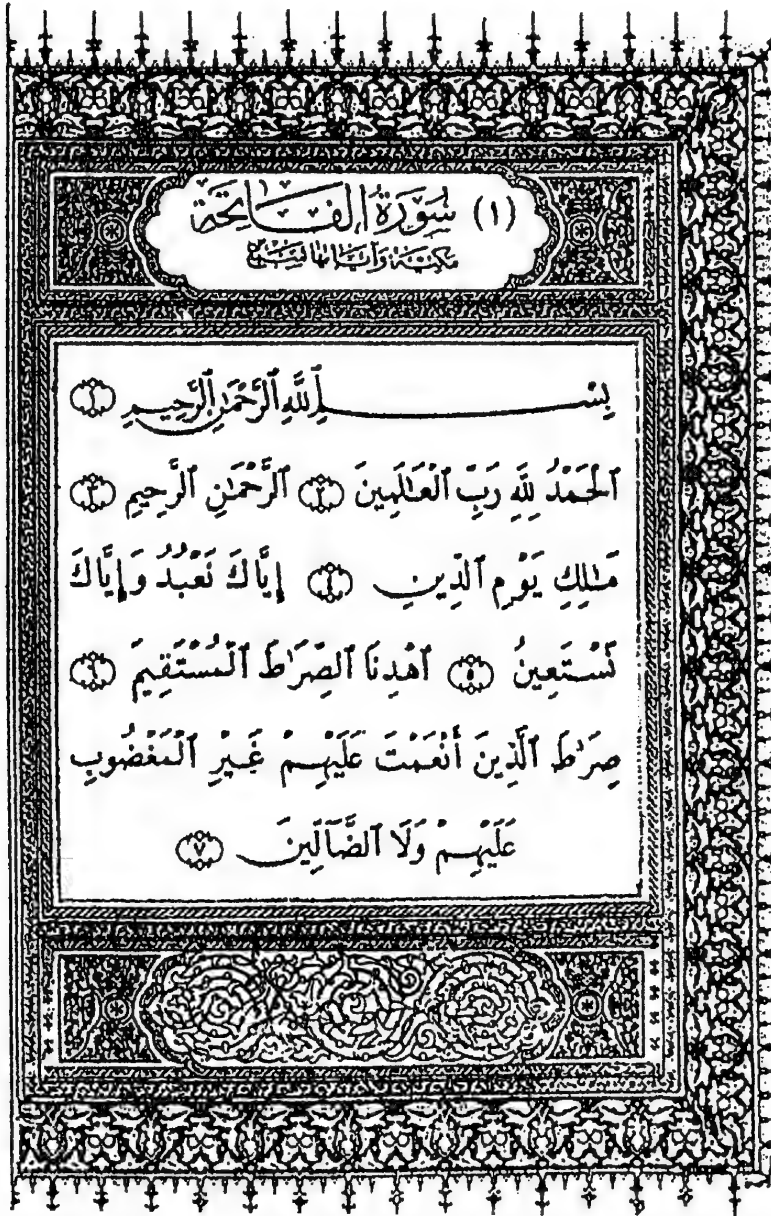 (١) سُورَةُ الفَاتِحَة
مكيّة وآياتها سبع
بِسْمِ ٱللَّهِ ٱلرَّحْمَٰنِ ٱلرَّحِيمِ ١
ٱلْحَمْدُ لِلَّهِ رَبِّ ٱلْعَٰلَمِينَ ٢ ٱلرَّحْمَٰنِ ٱلرَّحِيمِ ٣
مَٰلِكِ يَوْمِ ٱلدِّينِ ٤ إِيَّاكَ نَعْبُدُ وَإِيَّاكَ
نَسْتَعِينُ ٥ ٱهْدِنَا ٱلصِّرَٰطَ ٱلْمُسْتَقِيمَ ٦
صِرَٰطَ ٱلَّذِينَ أَنْعَمْتَ عَلَيْهِمْ غَيْرِ ٱلْمَغْضُوبِ
عَلَيْهِمْ وَلَا ٱلضَّآلِّينَ ٧